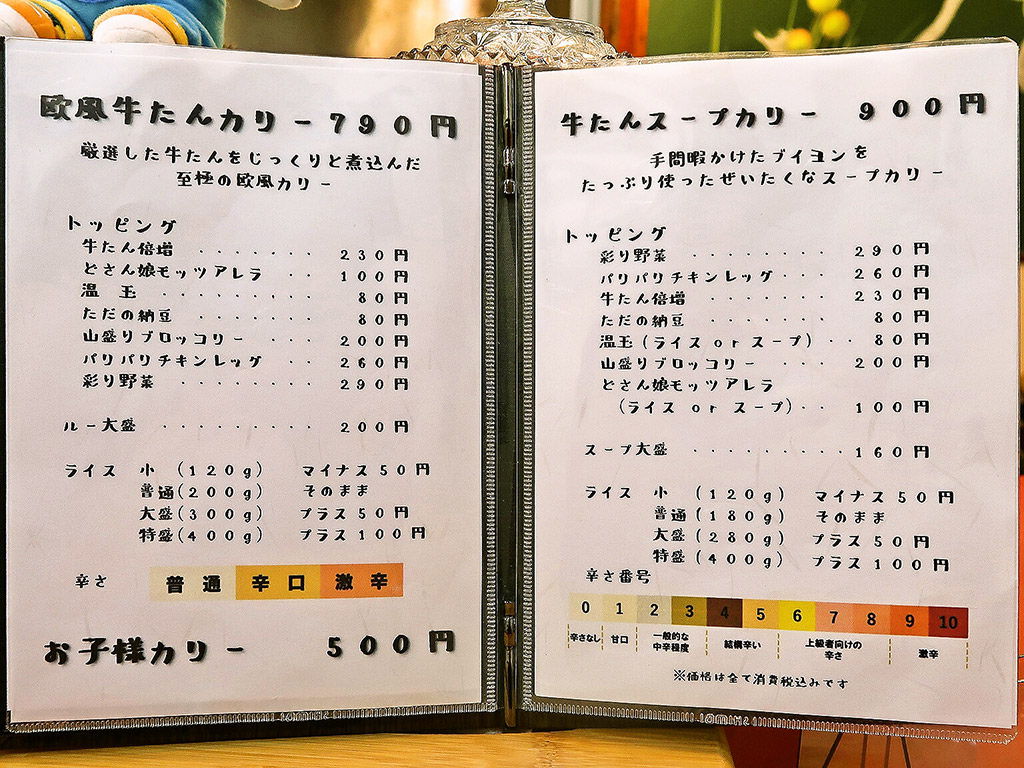 欧風牛たんカリー790円
厳選した牛たんをじっくりと煮込んだ
至極の欧風カリー
トッピング
牛たん倍増 ・・・・・・・ 230円
どさん娘モッツアレラ ・・ 100円
温 玉 ・・・・・・・・ 80円
ただの納豆 ・・・・・・・ 80円
山盛りブロッコリー ・・・ 200円
パリパリチキンレッグ ・・ 260円
彩り野菜 ・・・・・・・・ 290円
ルー大盛 ・・・・・・・・ 200円
ライス 小 (120g) マイナス50円
普通(200g) そのまま
大盛(300g) プラス50円
特盛(400g) プラス100円
辛さ 普通 辛口 激辛
お子様カリー 500円
牛たんスープカリー 900円
手間暇かけたブイヨンを
たっぷり使ったぜいたくなスープカリー
トッピング
彩り野菜 ・・・・・・・ 290円
パリパリチキンレッグ ・・・ 260円
牛たん倍増 ・・・・・・ 230円
ただの納豆 ・・・・・・ 80円
温玉(ライス or スープ)・・ 80円
山盛りブロッコリー ・・・ 200円
どさん娘モッツアレラ
(ライス or スープ)・・ 100円
スープ大盛 ・・・・・・・・ 160円
ライス 小 (120g) マイナス50円
普通(180g) そのまま
大盛(280g) プラス50円
特盛(400g) プラス100円
辛さ番号
0 1 2 3 4 5 6 7 8 9 10
辛さなし 甘口 一般的な中辛程度 結構辛い 上級者向けの辛さ 激辛
※価格は全て消費税込みです